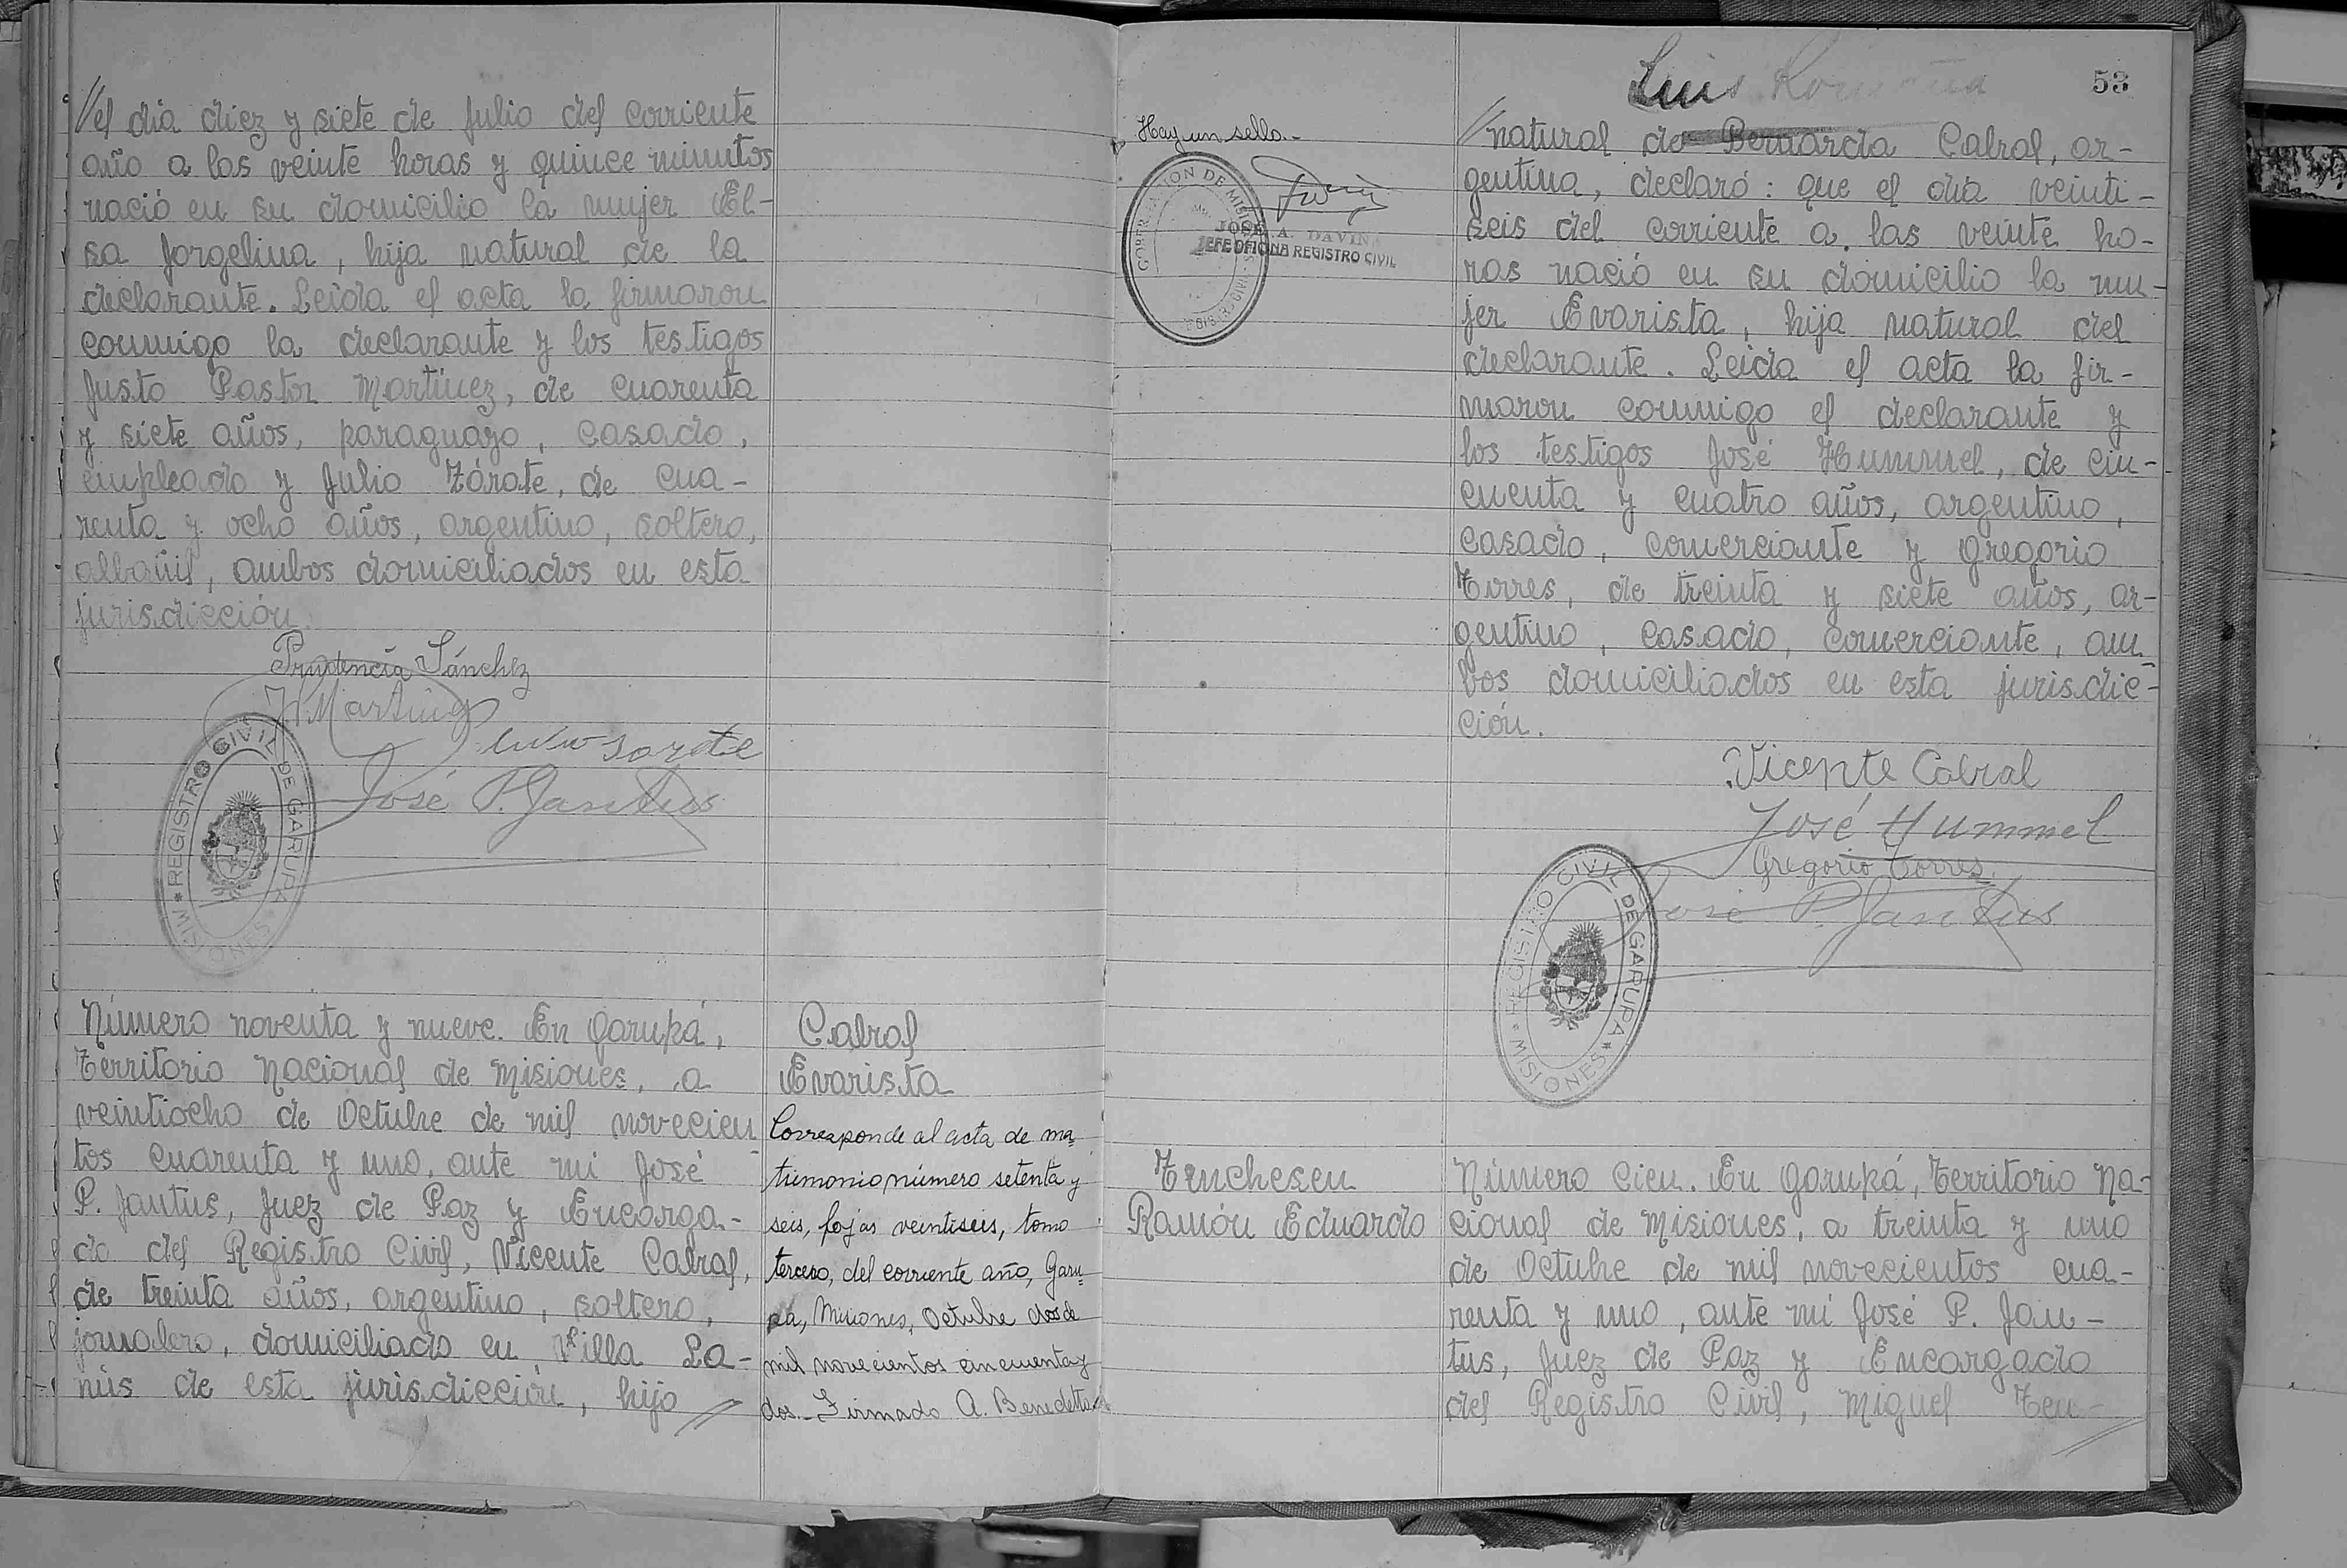 // el día diez y siete de Julio del corriente
año a las veinte horas y quince minutos
nació en su domicilio la mujer El-
sa Jorgelina, hija natural de la
declarante. Leída el acta la firmaron
conmigo la declarante y los testigos
Justo Pastor Martínez, de cuarenta
y siete años, paraguayo, casado,
empleado y Julio Zárate, de cua-
renta y ocho años, argentino, soltero,
albañil, ambos domiciliados en esta
jurisdicción.
Prudencia Sánchez
José P. Jantus
REGISTRO CIVIL DE GARUPA
* MISIONES *
Número noventa y nueve. En Garupá,
Territorio Nacional de Misiones, a
veintiocho de Octubre de mil novecien-
tos cuarenta y uno, ante mi José
P. Jantus, Juez de Paz y Encarga-
do del Registro Civil, Vicente Cabral,
de treinta años, argentino, soltero,
jornalero, domiciliado en Villa La-
nús de esta jurisdicción, hijo //
Cabral
Evarista
Corresponde al acta de ma=
trimonio número setenta y
seis, fojas veintiseis, tomo
tercero, del corriente año, Garu=
pá, Misiones, Octubre dos de
mil novecientos cincuenta y
dos.- Firmado A. Benedetto
Hay un sello.-
GOBERNACION DE MISIONES
JOSE A. DAVIÑA
JEFE OFICINA REGISTRO CIVIL
Luis
53
// natural de Bernarda Cabral, ar-
gentina, declaró: que el día veinti-
seis del corriente a las veinte ho-
ras nació en su domicilio la mu-
jer Evarista, hija natural del
declarante. Leída el acta la fir-
maron conmigo el declarante y
los testigos José Hummel, de cin-
cuenta y cuatro años, argentino,
casado, comerciante y Gregorio
Torres, de treinta y siete años, ar-
gentino, casado, comerciante, am-
bos domiciliados en esta jurisdic-
ción.
Vicente Cabral
José Hummel
Gregorio Torres
José P. Jantus
REGISTRO CIVIL DE GARUPA
* MISIONES *
Tenchesen
Ramón Eduardo
Número cien. En Garupá, Territorio Na-
cional de Misiones, a treinta y uno
de Octubre de mil novecientos cua-
renta y uno, ante mí José P. Jan-
tus, Juez de Paz y Encargado
del Registro Civil, Miguel Ten- //